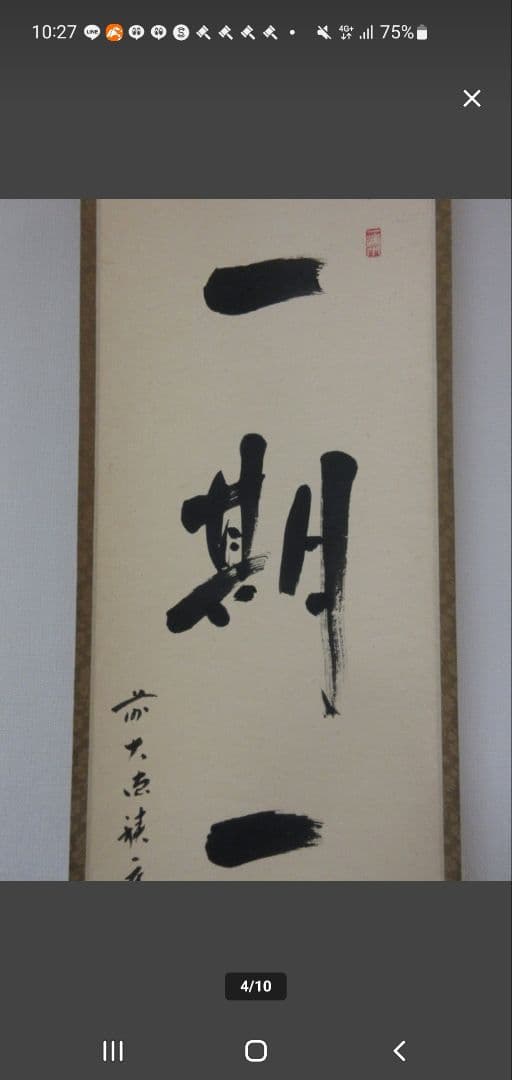 10:27 LINE S 4G+ 75%
一
期
一
前大徳積
4/10